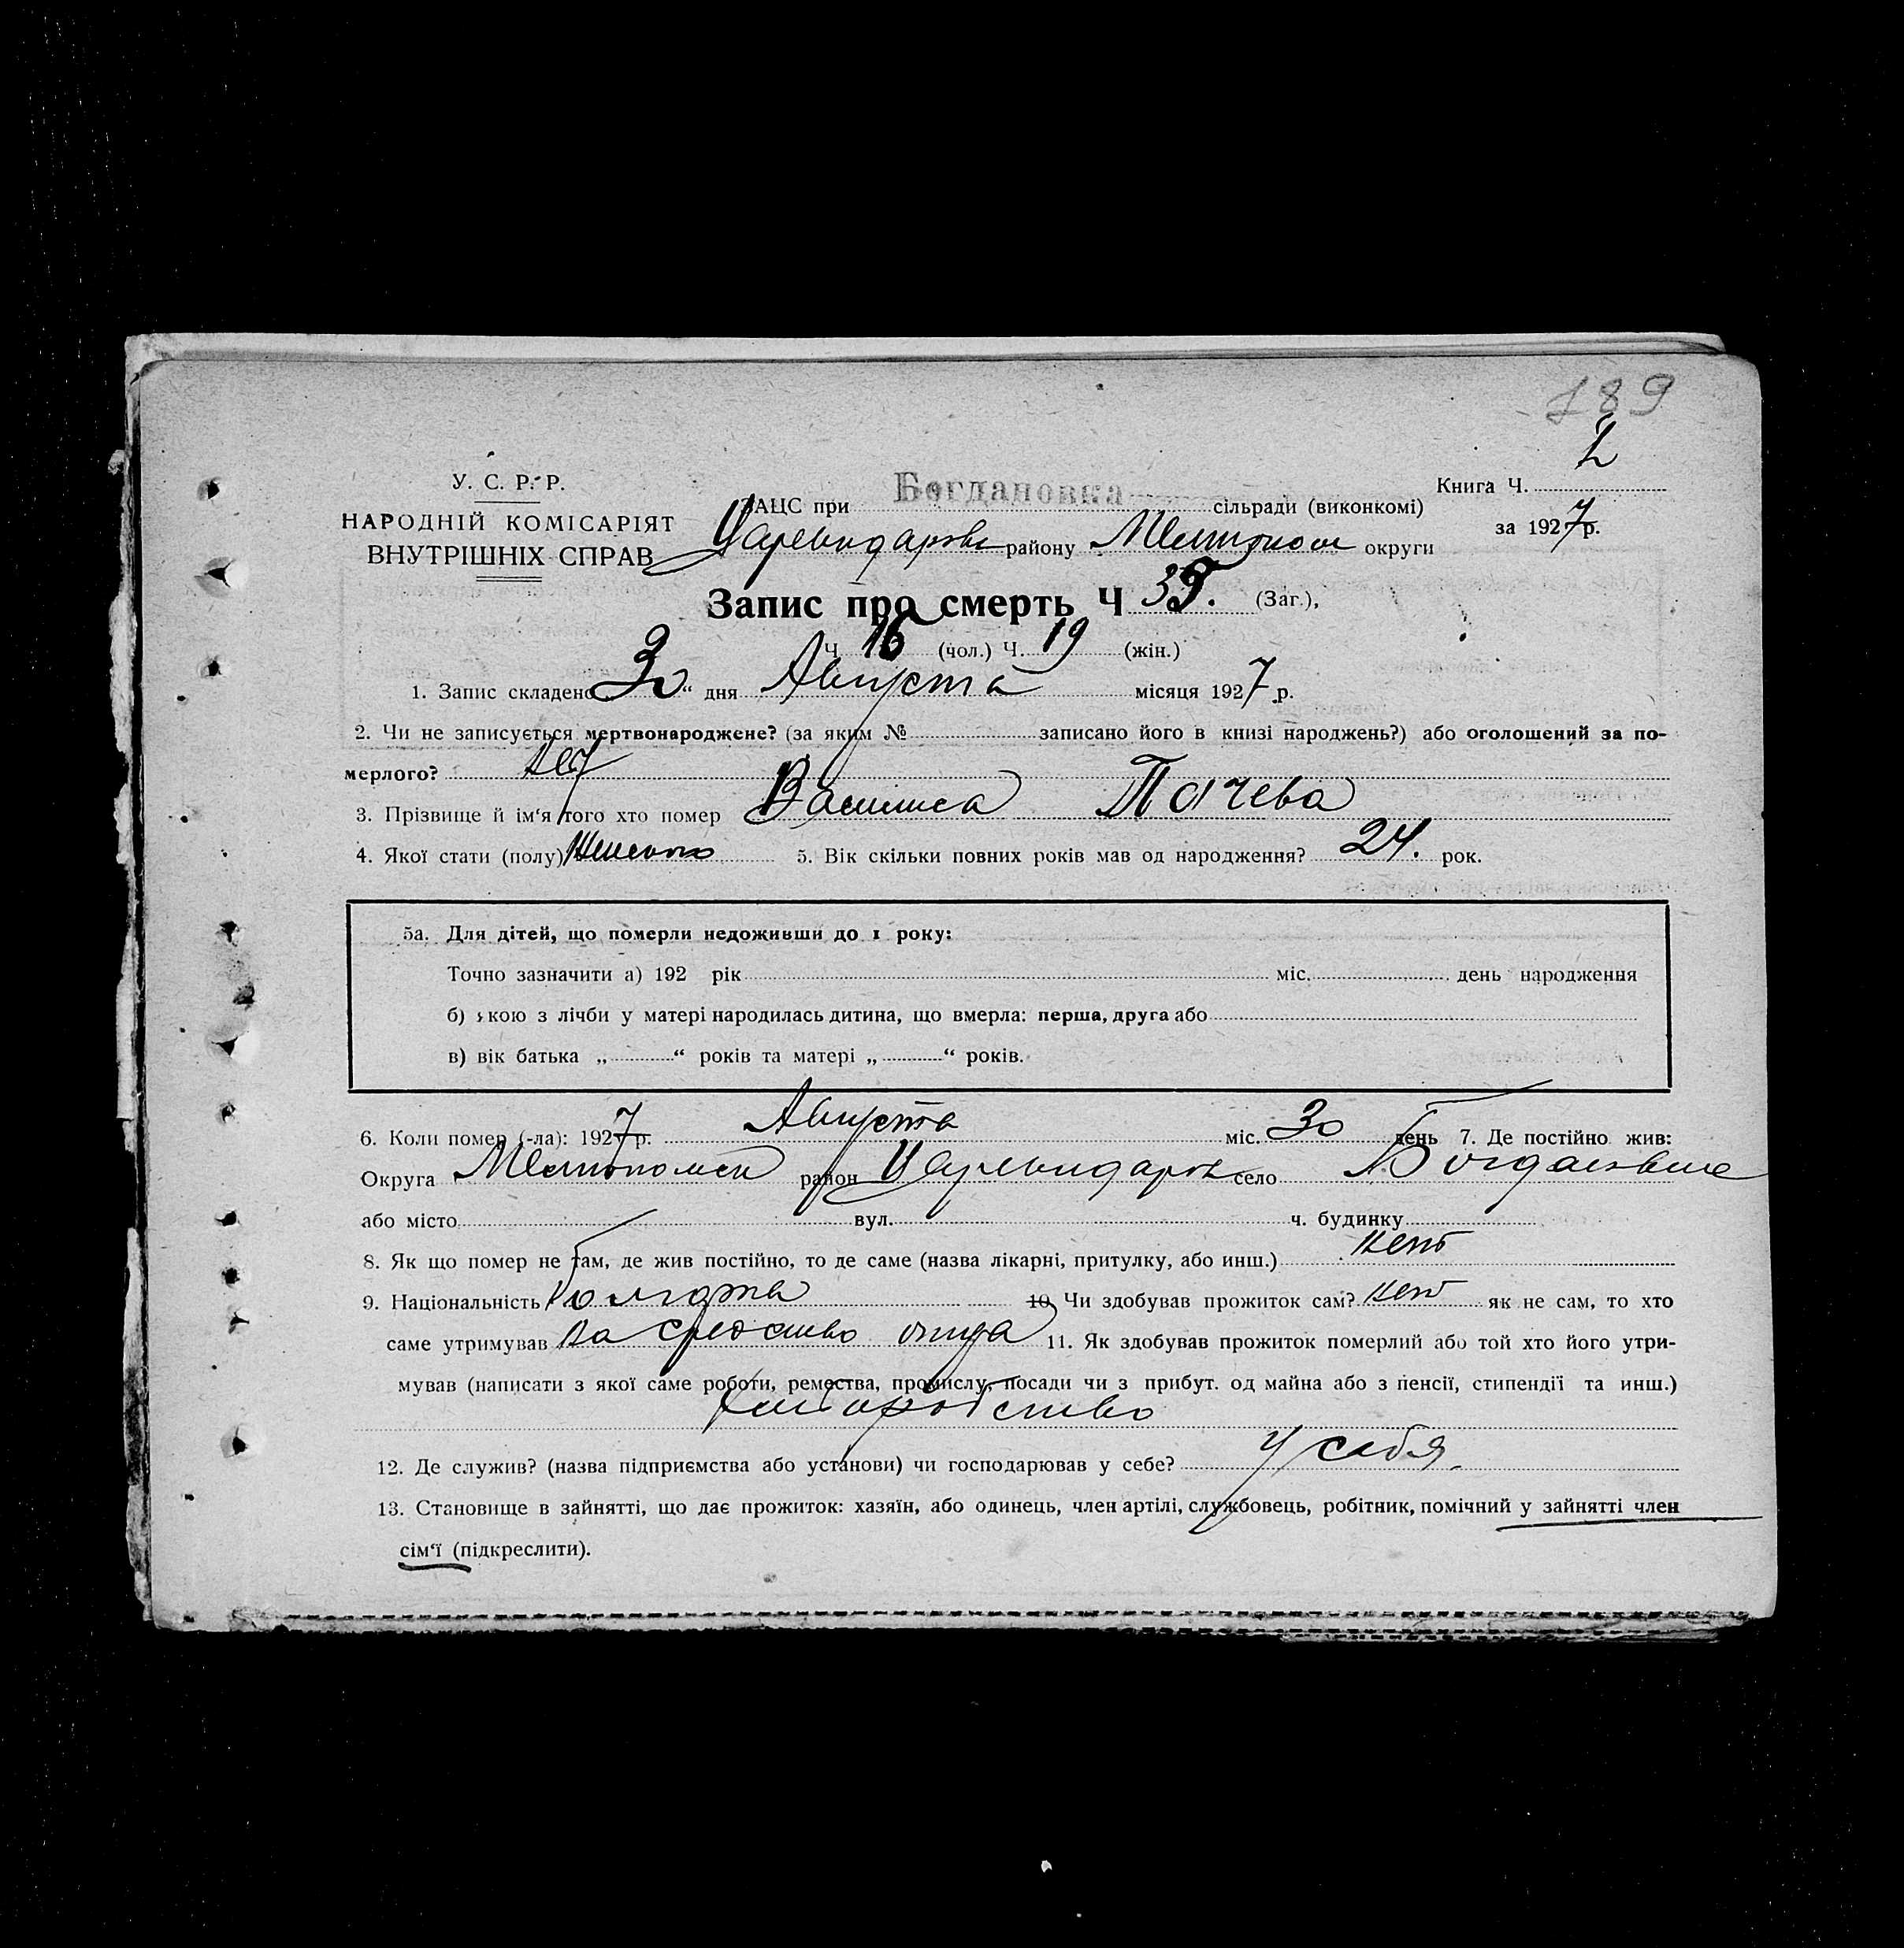 189
У. С. Р. Р.
НАРОДНІЙ КОМІСАРІЯТ
ВНУТРІШНІХ СПРАВ
ЗАЦС при Богдановка сільради (виконкомі)
Книга Ч.
району округи
за 1927 р.
Запис про смерть Ч 35. (Заг.),
Ч. 16 (чол.) Ч. 19 (жін.)
1. Запис складено 30 “ дня Августа місяця 1927 р.
2. Чи не записується мертвонароджене? (за яким № записано його в книзі народжень?) або оголошений за по-
мерлого? Нет
3. Прізвище й ім‘я того хто помер Василиса Пачева
4. Якої стати (полу) Женского 5. Вік скільки повних років мав од народження? 24. рок.
5а. Для дітей, що померли недоживши до 1 року:
Точно зазначити а) 192 рік міс. день народження
б) якою з лічби у матері народилась дитина, що вмерла: перша, друга або
в) вік батька „ “ років та матері „ “ років.
6. Коли помер (-ла): 1927 р. Августа міс. 30 день 7. Де постійно жив:
Округа район село
або місто вул. ч. будинку
8. Як що помер не там, де жив постійно, то де саме (назва лікарні, притулку, або инш.) нет
9. Національність 10. Чи здобував прожиток сам? нет як не сам, то хто
саме утримував на средство отца 11. Як здобував прожиток померлий або той хто його утри-
мував (написати з якої саме роботи, ремества, промислу, посади чи з прибут. од майна або з пенсії, стипендії та инш.)
12. Де служив? (назва підприємства або установи) чи господарював у себе? у себя.
13. Становище в зайнятті, що дає прожиток: хазяїн, або одинець, член артілі, службовець, робітник, помічний у зайнятті член
сім‘ї (підкреслити).